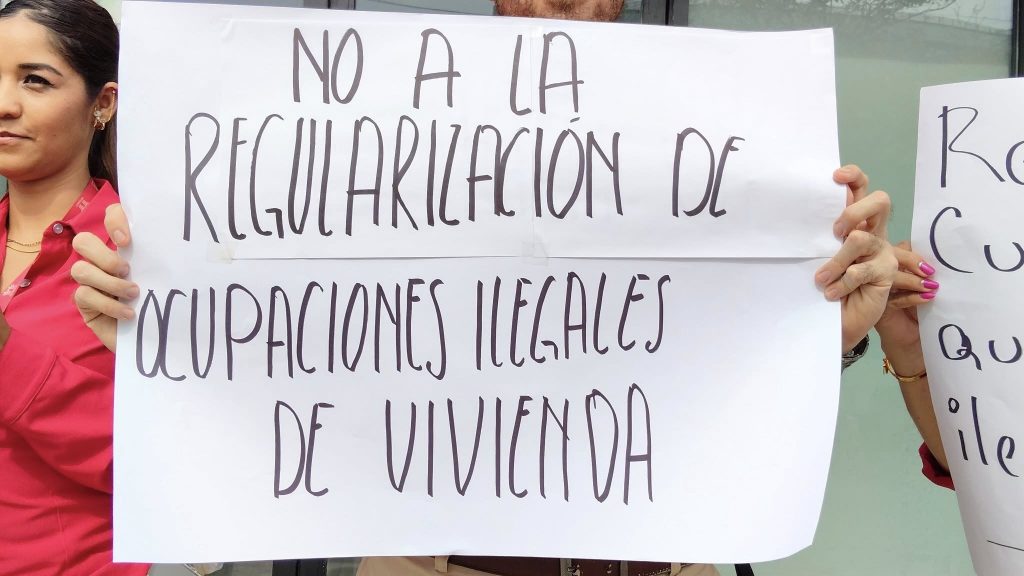 NO A LA
REGULARIZACIÓN DE
OCUPACIONES ILEGALES
DE VIVIENDA